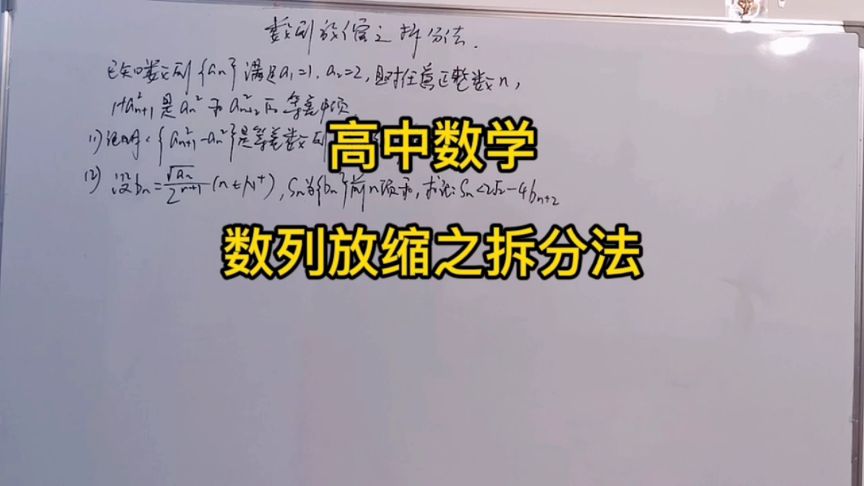 数列放缩之拆分法.
已知数列{aₙ}满足a₁=1, a₂=2, 且对任意正整数n,
1+a²ₙ₊₁是aₙ²和a²ₙ₊₂的等差中项
(1)证明: {a²ₙ₊₁-aₙ²}是等差数列
高中数学
(2) 设bₙ=√aₙ/2ⁿ⁺¹(n∈N⁺), Sₙ为{bₙ}前n项和, 求证: Sₙ<2√2-4bₙ₊₂
数列放缩之拆分法